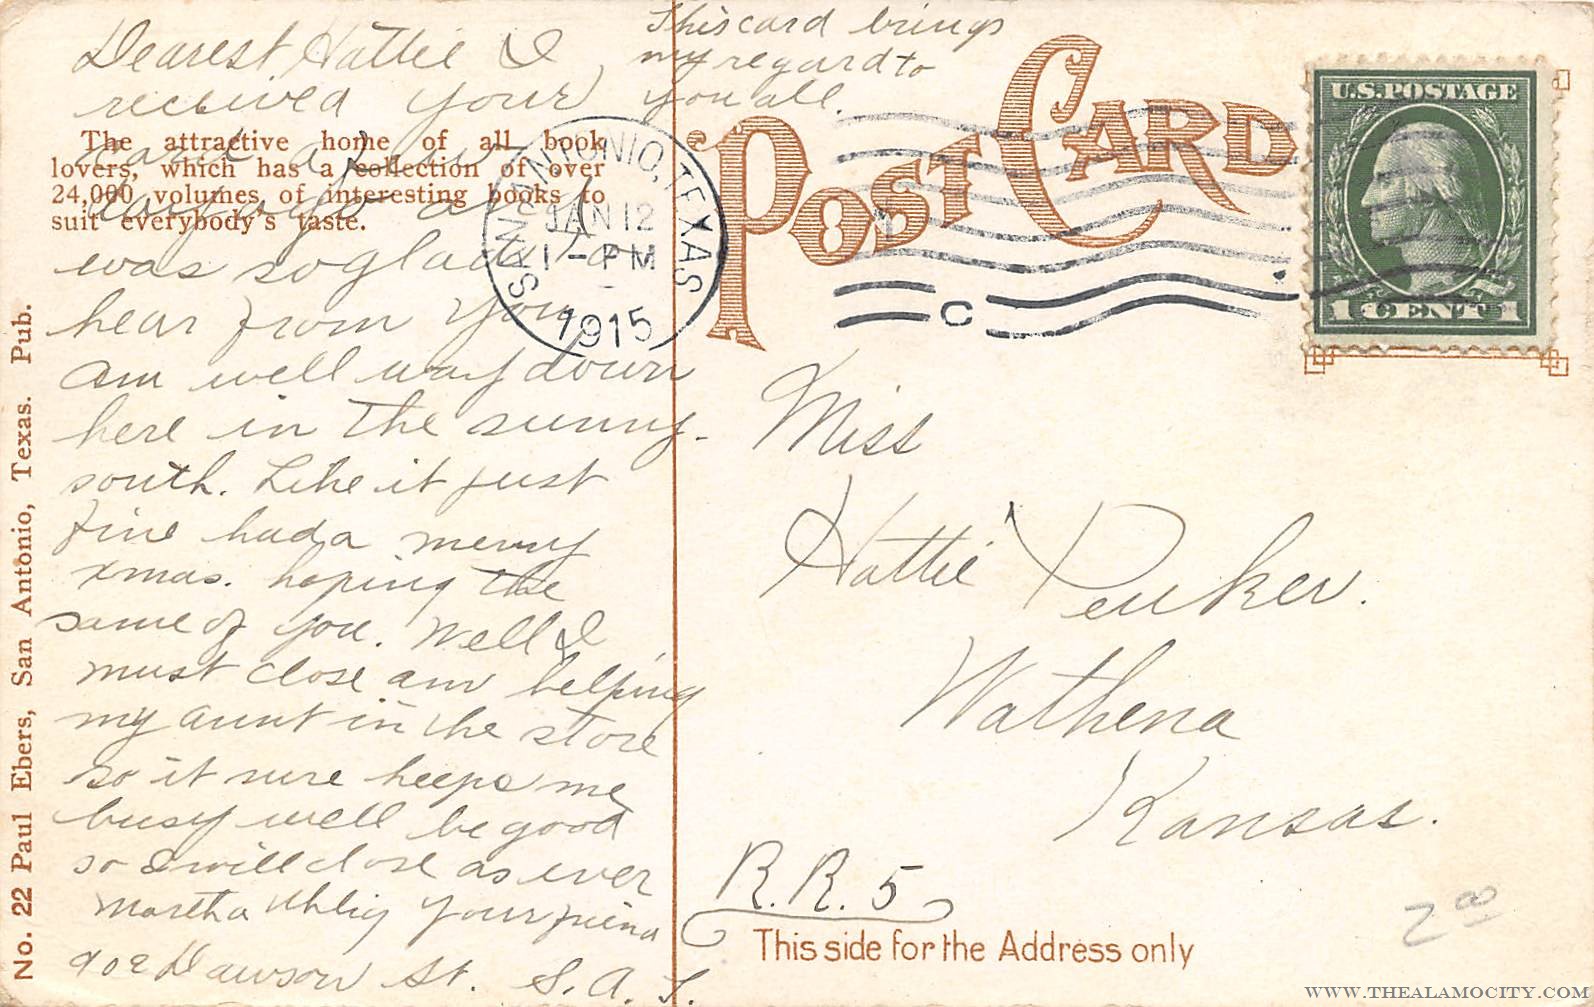 Dearest Hattie I
received your
card a few
days ago and
was so glad to
hear from you
am well way down
here in the sunny
south. Like it just
fine had a merry
xmas. hoping the
same of you. Well I
must close am helping
my aunt in the store
so it sure keeps me
busy well be good
so I will close as ever
Martha Uhlig your friend
902 Dawson St. S.A.T.
This card brings
my regard to
you all.
The attractive home of all book
lovers, which has a collection of over
24,000 volumes of interesting books to
suit everybody's taste.
No. 22 Paul Ebers, San Antonio, Texas. Pub.
SAN ANTONIO, TEXAS
JAN 12
1-PM
1915
C
POST CARD
U.S. POSTAGE
1 CENT 1
Miss
Hattie Peuker.
Wathena
Kansas.
R.R. 5
This side for the Address only
2 00
WWW.THEALAMOCITY.COM